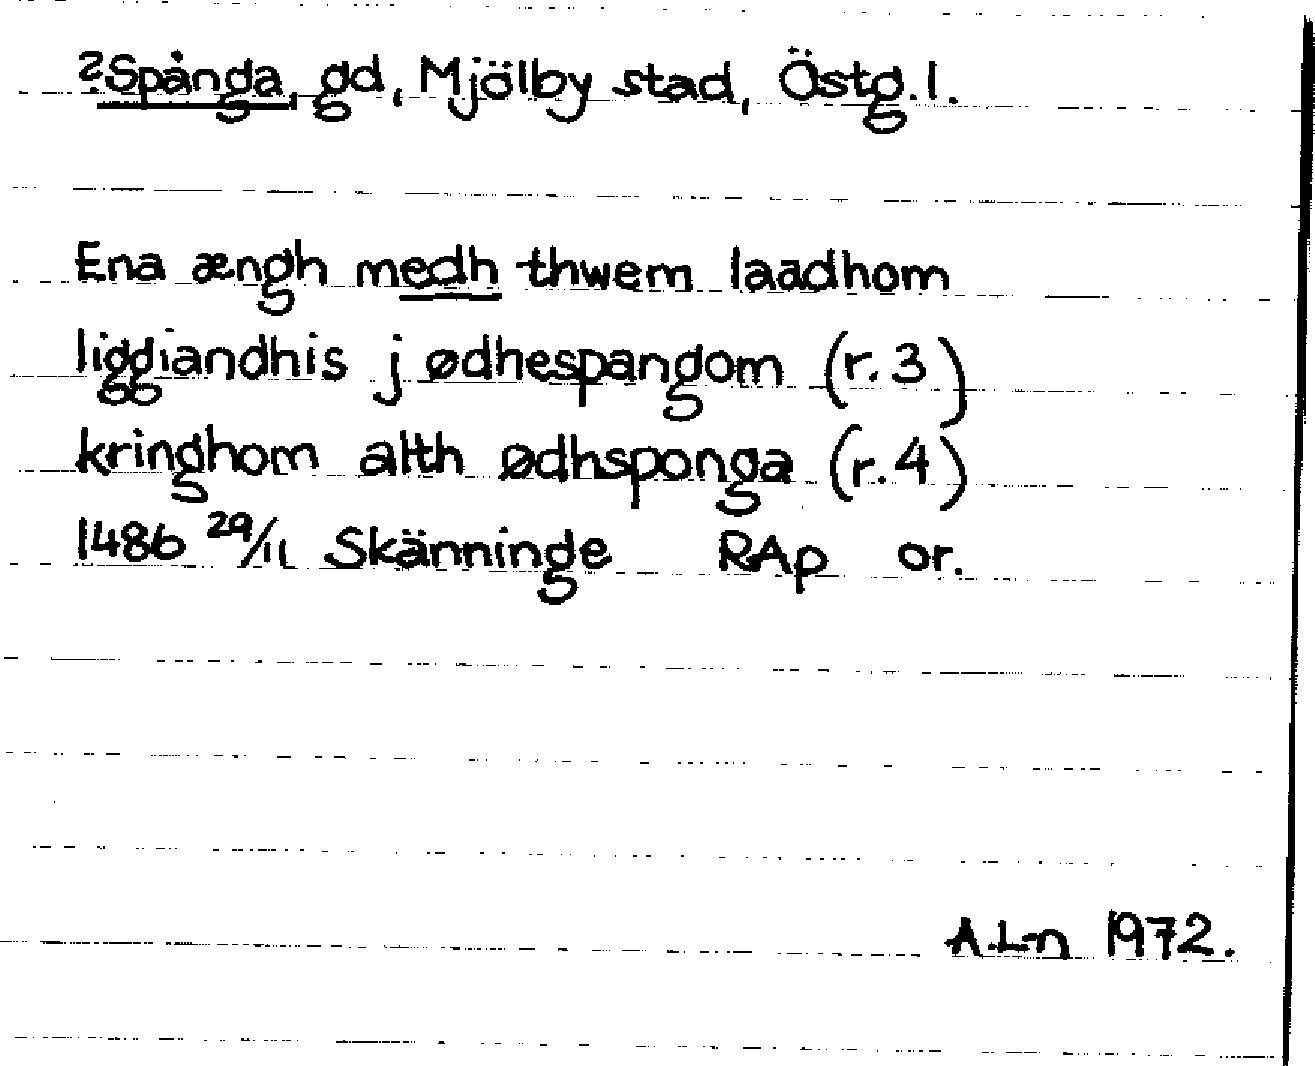 ?Spånga, gd, Mjölby stad, Östg.l.
Ena ængh medh thwem laadhom
liggiandhis j ødhespangom (r.3)
kringhom alth ødhsponga (r.4)
1486 29/11 Skänninge RAp or.
A.L-n 1972.